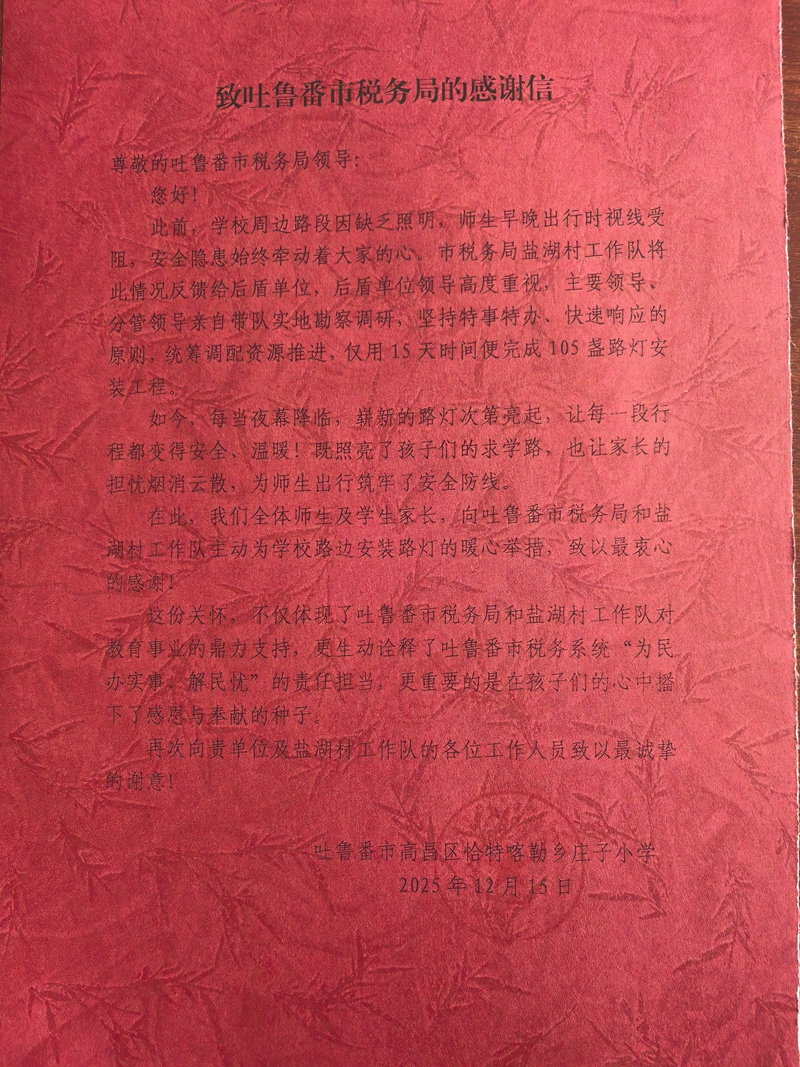 致吐鲁番市税务局的感谢信
尊敬的吐鲁番市税务局领导：
您好！
此前，学校周边路段因缺乏照明，师生早晚出行时视线受
阻，安全隐患始终牵动着大家的心。市税务局盐湖村工作队将
此情况反馈给后盾单位，后盾单位领导高度重视，主要领导、
分管领导亲自带队实地勘察调研，坚持特事特办、快速响应的
原则，统筹调配资源推进，仅用 15 天时间便完成 105 盏路灯安
装工程。
如今，每当夜幕降临，崭新的路灯次第亮起，让每一段行
程都变得安全、温暖！既照亮了孩子们的求学路，也让家长的
担忧烟消云散，为师生出行筑牢了安全防线。
在此，我们全体师生及学生家长，向吐鲁番市税务局和盐
湖村工作队主动为学校路边安装路灯的暖心举措，致以最衷心
的感谢！
这份关怀，不仅体现了吐鲁番市税务局和盐湖村工作队对
教育事业的鼎力支持，更生动诠释了吐鲁番市税务系统“为民
办实事、解民忧”的责任担当，更重要的是在孩子们的心中播
下了感恩与奉献的种子。
再次向贵单位及盐湖村工作队的各位工作人员致以最诚挚
的谢意！
吐鲁番市高昌区恰特喀勒乡庄子小学
2025 年 12 月 15 日